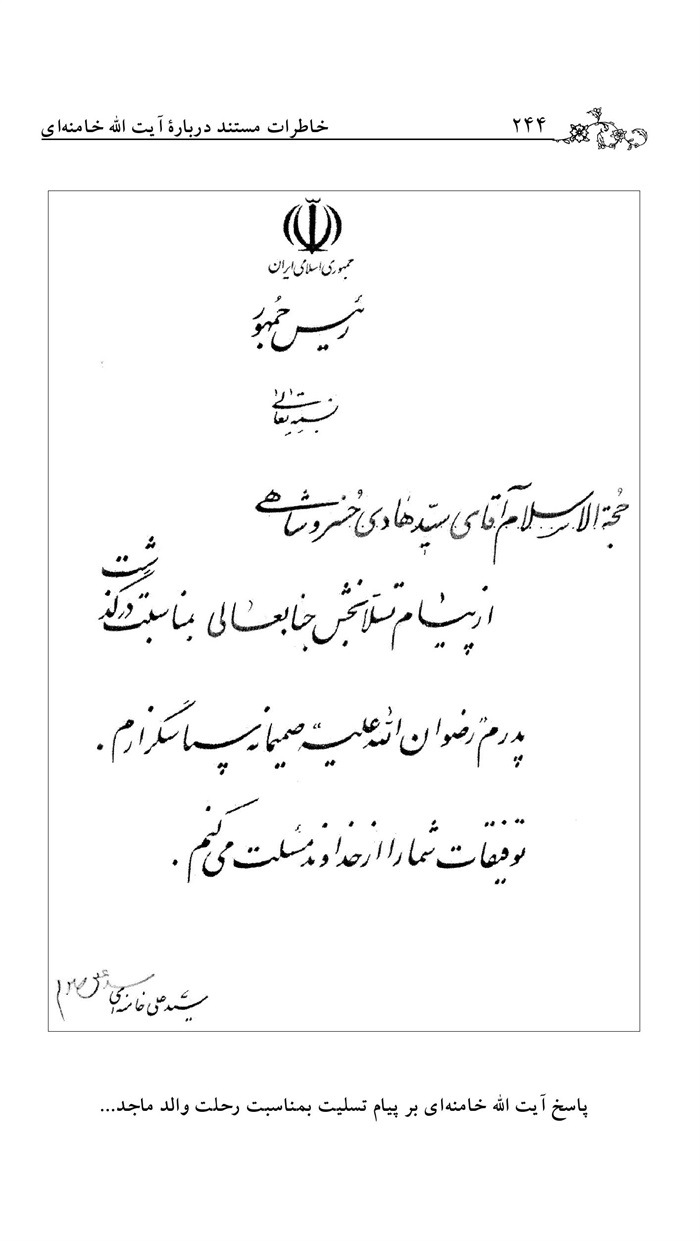 ۲۴۴ خاطرات مستند دربارهٔ آیت الله خامنه‌ای
جمهوری اسلامی ایران
رئیس جمهور
بسمه تعالی
حجة الاسلام آقای سید هادی خسروشاهی
از پیام تسلابخش جنابعالی بمناسبت درگذشت
پدرم رضوان الله علیه صمیمانه سپاسگزارم .
توفیقات شما را از خداوند مسئلت می کنم .
سید علی خامنه ای
پاسخ آیت الله خامنه‌ای بر پیام تسلیت بمناسبت رحلت والد ماجد...